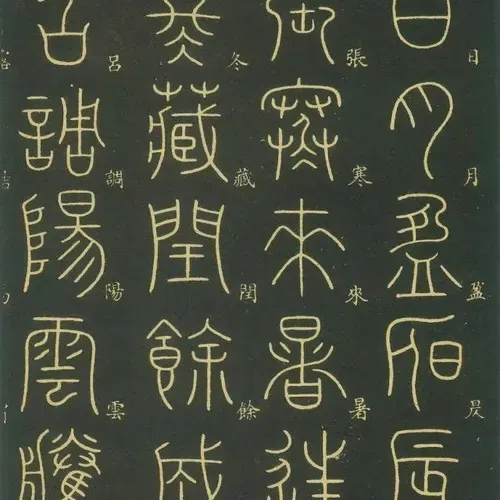 日月盈昃
日月盈昃辰
張寒來暑
張寒來暑往
冬藏閏餘
冬藏閏餘成
呂調陽雲
呂調陽雲騰